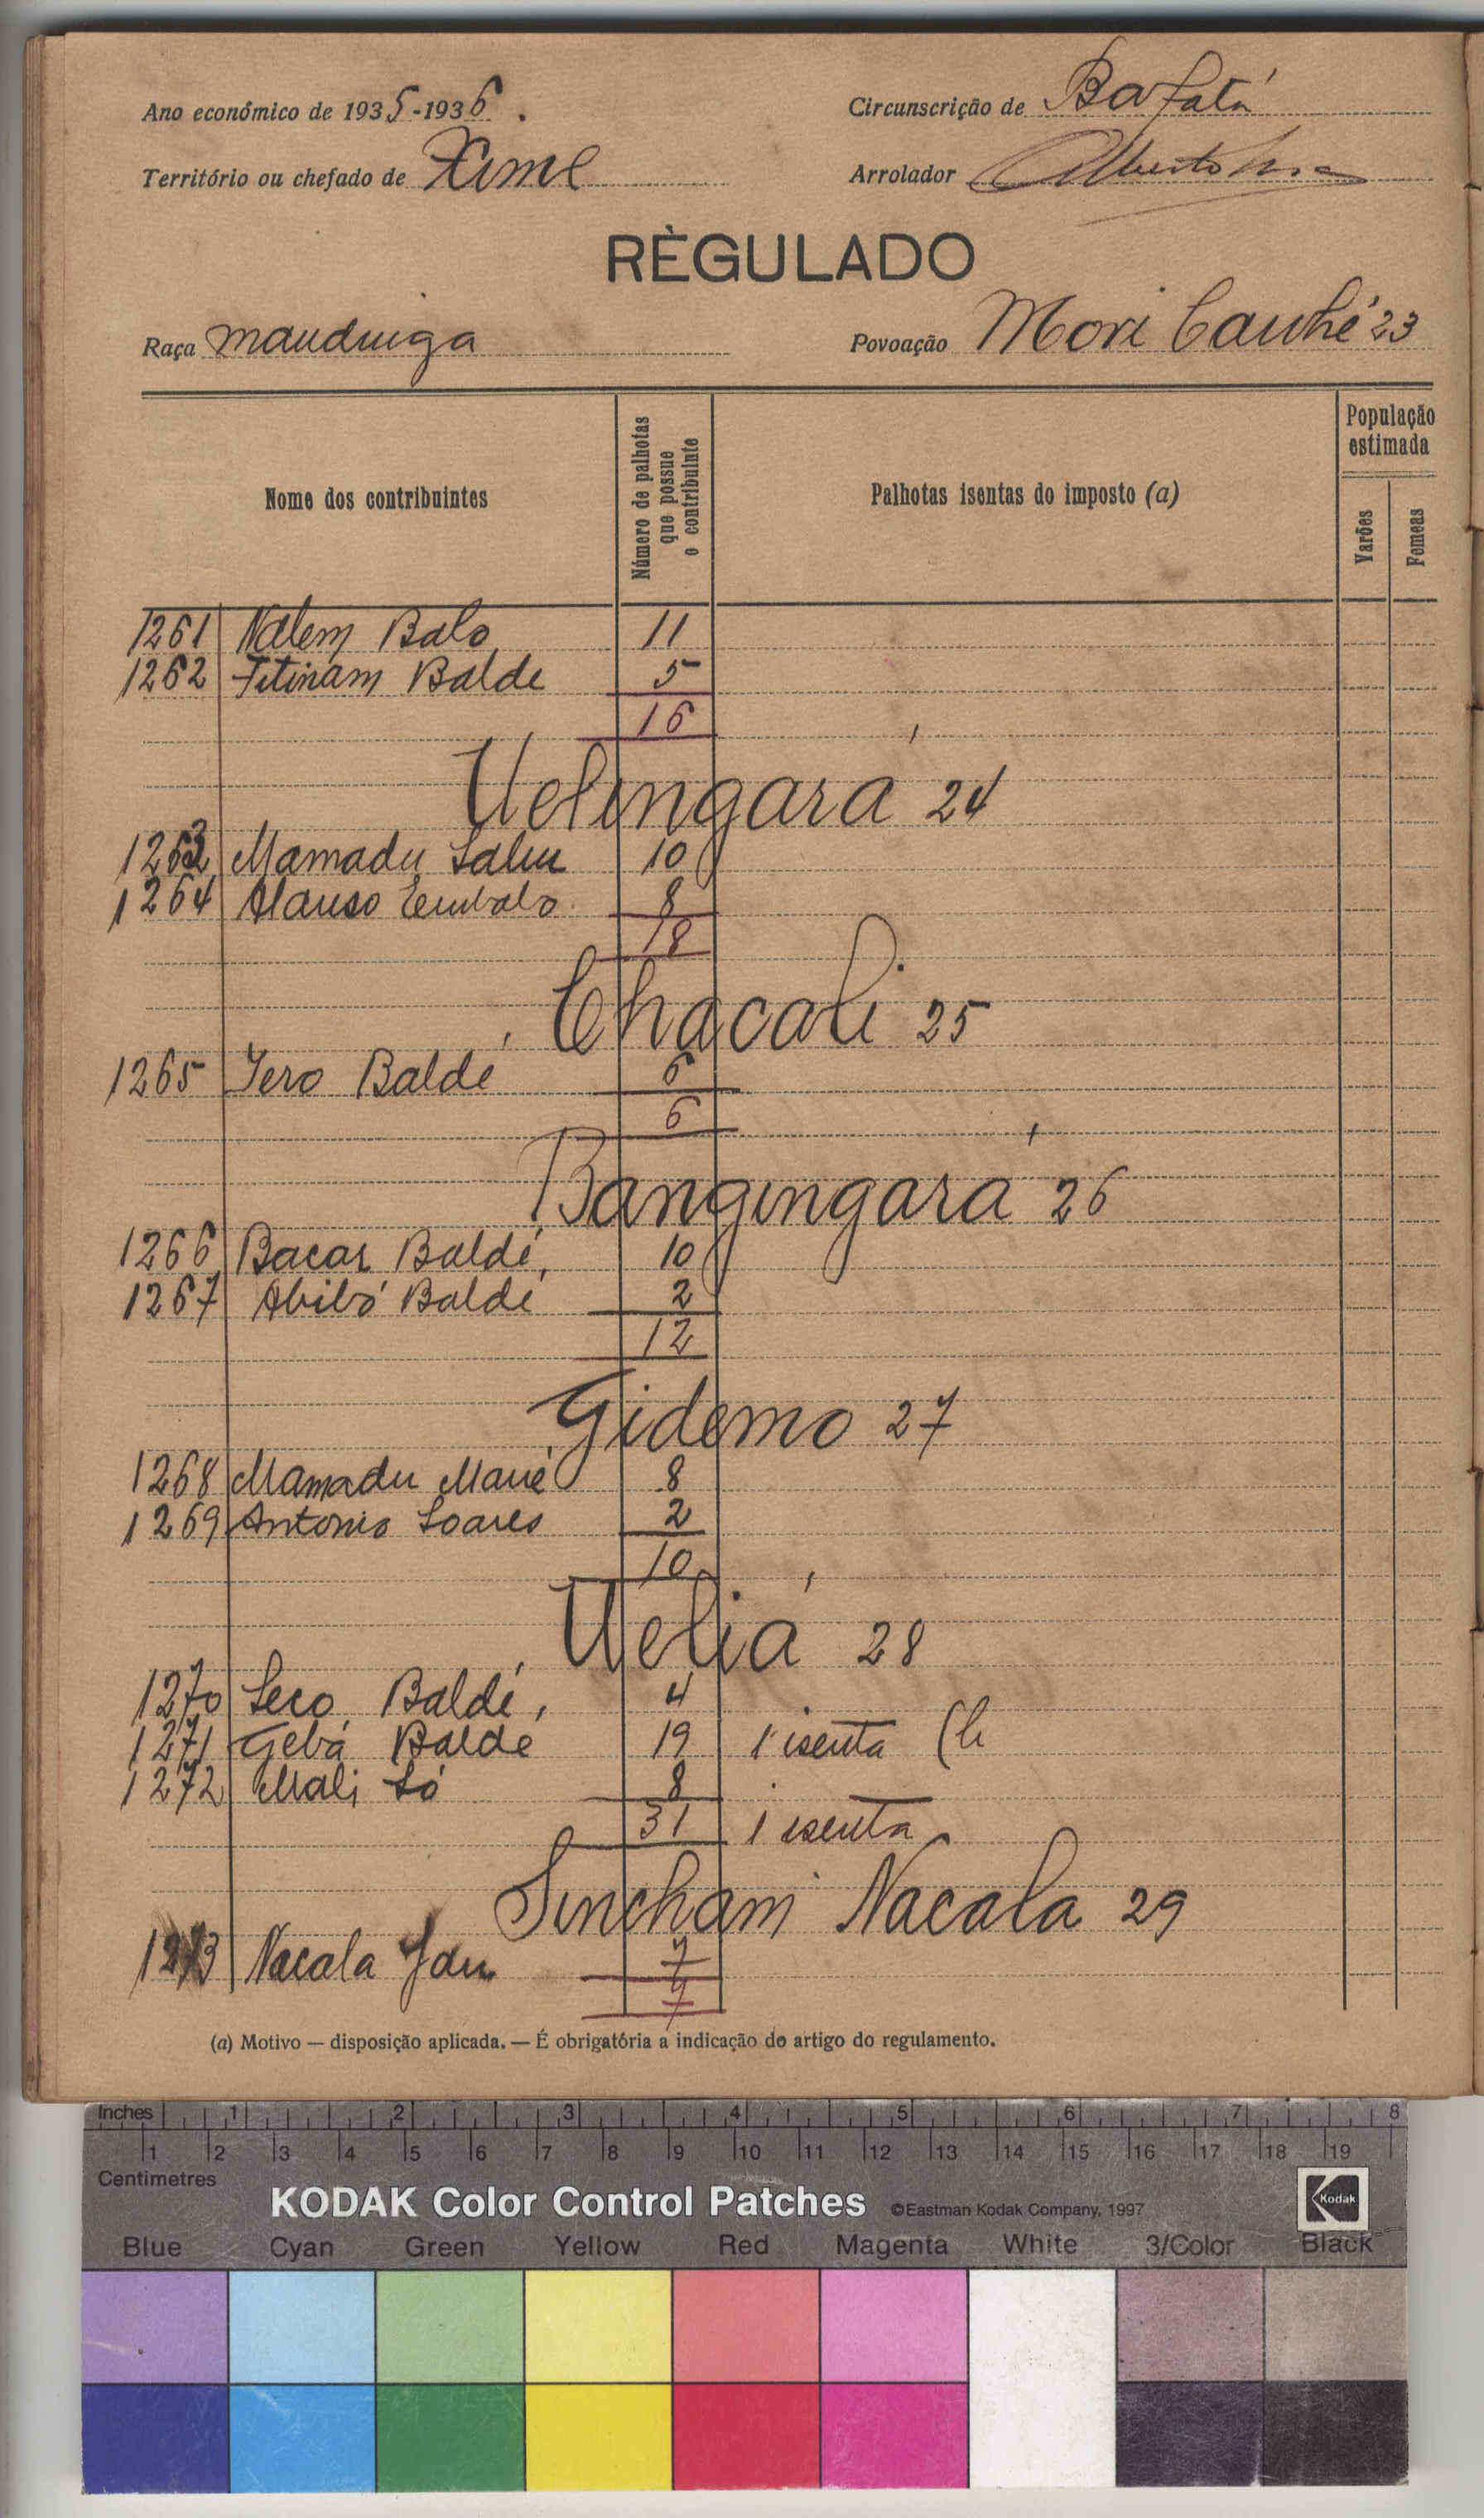 Ano económico de 1935-1936. Circunscrição de Bafatá
Território ou chefado de Xime Arrolador Alberto
RÈGULADO
Raça mandinga Povoação Mori Cauhé 23
Nome dos contribuintes
Número de palhotas que possue o contribuinte
Palhotas isentas do imposto (a)
População estimada
Varões
Femeas
1261 Nalem Balo 11
1262 Fitinam Balde 5
16
Uelingará 24
1263 Mamadu Saliu 10
1264 Alanso Embalo 8
18
Chacali 25
1265 Iero Baldé 6
6
Bangingará 26
1266 Bacar Baldé 10
1267 Abibó Baldé 2
12
Gidemo 27
1268 Mamadu Mané 8
1269 Antonio Soares 2
10
Ueliá 28
1270 Seco Baldé 4
1271 Gebá Balde 19 1 isenta
1272 Mali Só 8
31 1 isenta
Sincham Nacala 29
1273 Nacala Jau 7
7
(a) Motivo — disposição aplicada. — É obrigatória a indicação do artigo do regulamento.
Inches 1 2 3 4 5 6 7 8
1 2 3 4 5 6 7 8 9 10 11 12 13 14 15 16 17 18 19
Centimetres
KODAK Color Control Patches ©Eastman Kodak Company, 1997 Kodak
Blue Cyan Green Yellow Red Magenta White 3/Color Black